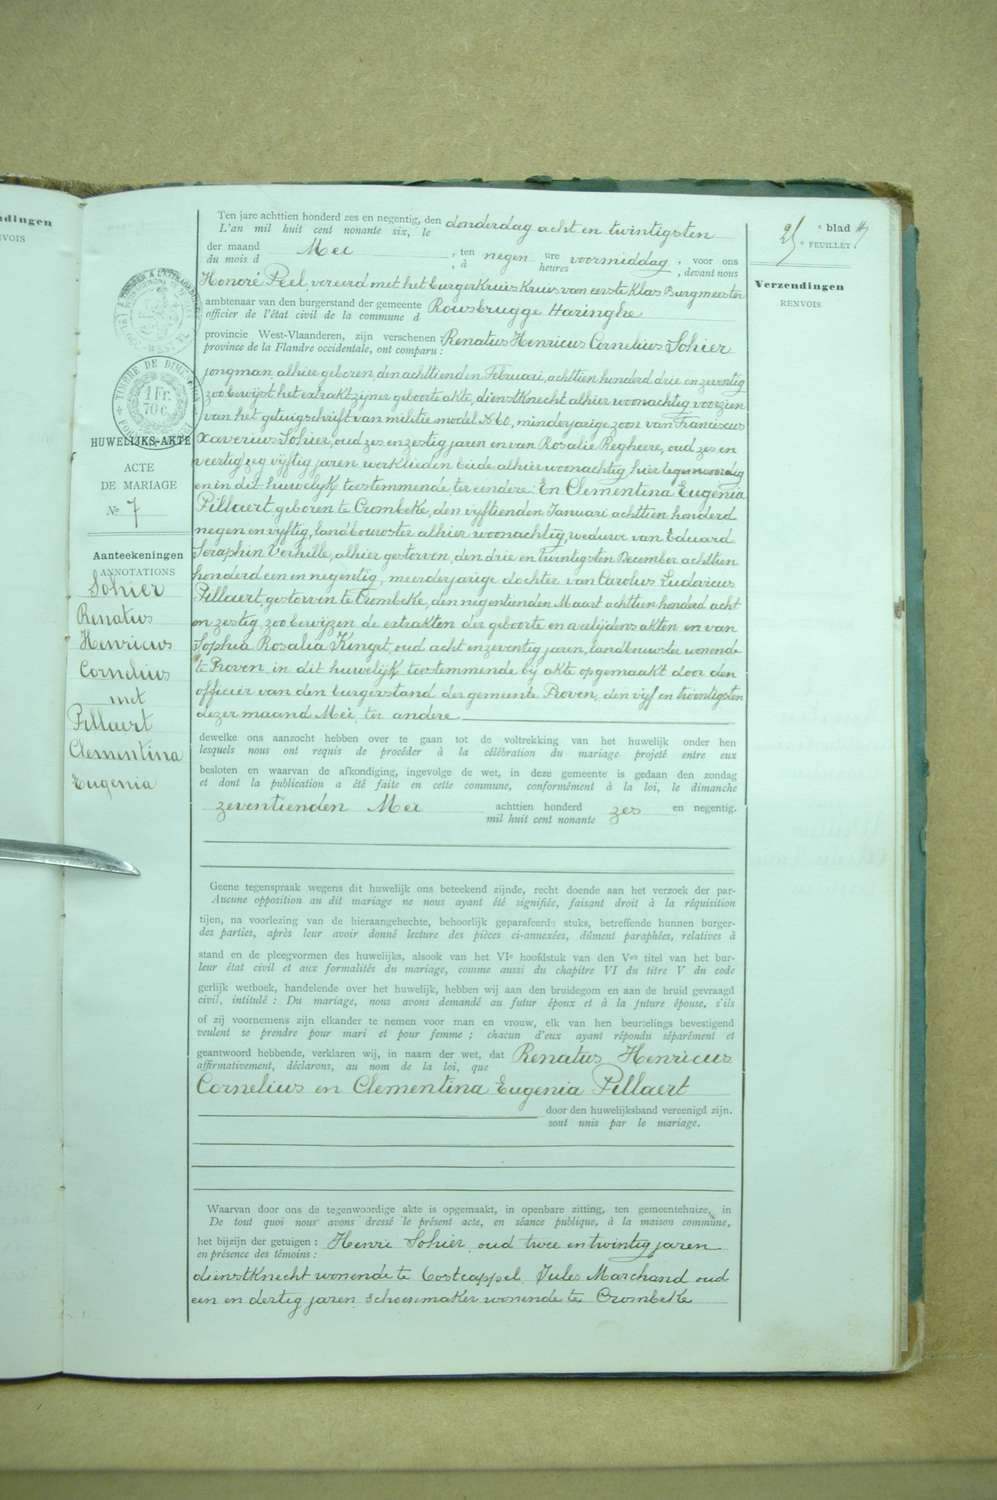 ndingen
VOIS
25 e blad
e FEUILLET
Verzendingen
RENVOIS
TIMBRE DE DIM
1 Fr.
70 c.
HUWELIJKS-AKTE
ACTE
DE MARIAGE
No 7
Aanteekeningen
ANNOTATIONS
Sohier
Renatus
Henricus
Cornelius
met
Pillaert
Clementina
Eugenia
Ten jare achttien honderd zes en negentig, den donderdag acht en twintigsten
L'an mil huit cent nonante six, le
der maand Mei, ten negen ure voormiddag, voor ons
du mois d , à heures , devant nous
Honoré Peel vereerd met het burgerkruis van eerste Klas Burgmeester
ambtenaar van den burgerstand der gemeente Rousbrugge Haringhe
officier de l'état civil de la commune d
provincie West-Vlaanderen, zijn verschenen Renatus Henricus Cornelius Sohier
province de la Flandre occidentale, ont comparu :
jongman, alhier geboren, den achttienden Februari, achttien honderd drie en zeventig
zoo bewijst het extrakt zijner geboorte akte, dienstknecht alhier woonachtig voorzien
van het getuigschrift van militie model A 60, minderjarige zoon van Franciscus
Xaverius Sohier, oud zes en zestig jaren en van Rosalie Regheere, oud zes en
veertig zeg vijftig jaren werklieden beide alhier woonachtig hier tegenwoordig
en in dit huwelijk toestemmende, ter eendere. En Clementina Eugenia
Pillaert, geboren te Crombeke, den vijftienden Januari achttien honderd
negen en vijftig, landbouwster alhier woonachtig, weduwe van Eduard
Seraphin Verhille, alhier gestorven, den drie en twintigsten December achttien
honderd een en negentig, meerderjarige dochter van Carolus Ludovicus
Pillaert, gestorven te Crombeke, den negentienden Maart achttien honderd acht
en zestig, zoo bewijzen de extrakten der geboorte en overlijdensakten en van
Sophia Rosalia Kinget, oud acht en zeventig jaren, landbouwster wonende
te Proven in dit huwelijk toestemmende bij akte opgemaakt door den
officier van den burgerstand der gemeente Proven, den vijf en twintigsten
dezer maand Mei, ter andere
dewelke ons aanzocht hebben over te gaan tot de voltrekking van het huwelijk onder hen
lesquels nous ont requis de procéder à la célébration du mariage projeté entre eux
besloten en waarvan de afkondiging, ingevolge de wet, in deze gemeente is gedaan den zondag
et dont la publication a été faite en cette commune, conformément à la loi, le dimanche
zeventienden Mei achttien honderd zes en negentig.
mil huit cent nonante
Geene tegenspraak wegens dit huwelijk ons beteekend zijnde, recht doende aan het verzoek der par-
Aucune opposition au dit mariage ne nous ayant été signifiée, faisant droit à la réquisition
tijen, na voorlezing van de hieraangehechte, behoorlijk geparafeerde stuks, betreffende hunnen burger-
des parties, après leur avoir donné lecture des pièces ci-annexées, dûment paraphées, relatives à
stand en de pleegvormen des huwelijks, alsook van het VIe hoofdstuk van den Ven titel van het bur-
leur état civil et aux formalités du mariage, comme aussi du chapitre VI du titre V du code
gerlijk wetboek, handelende over het huwelijk, hebben wij aan den bruidegom en aan de bruid gevraagd
civil, intitulé : Du mariage, nous avons demandé au futur époux et à la future épouse, s'ils
of zij voornemens zijn elkander te nemen voor man en vrouw, elk van hen beurtelings bevestigend
veulent se prendre pour mari et pour femme ; chacun d'eux ayant répondu séparément et
geantwoord hebbende, verklaren wij, in naam der wet, dat Renatus Henricus
affirmativement, déclarons, au nom de la loi, que
Cornelius en Clementina Eugenia Pillaert
door den huwelijksband vereenigd zijn.
sont unis par le mariage.
Waarvan door ons de tegenwoordige akte is opgemaakt, in openbare zitting, ten gemeentehuize, in
De tout quoi nous avons dressé le présent acte, en séance publique, à la maison commune,
het bijzijn der getuigen : Henri Sohier, oud twee en twintig jaren
en présence des témoins :
dienstknecht wonende te Oostcappel, Jules Marchand oud
een en dertig jaren, schoenmaker wonende te Crombeke